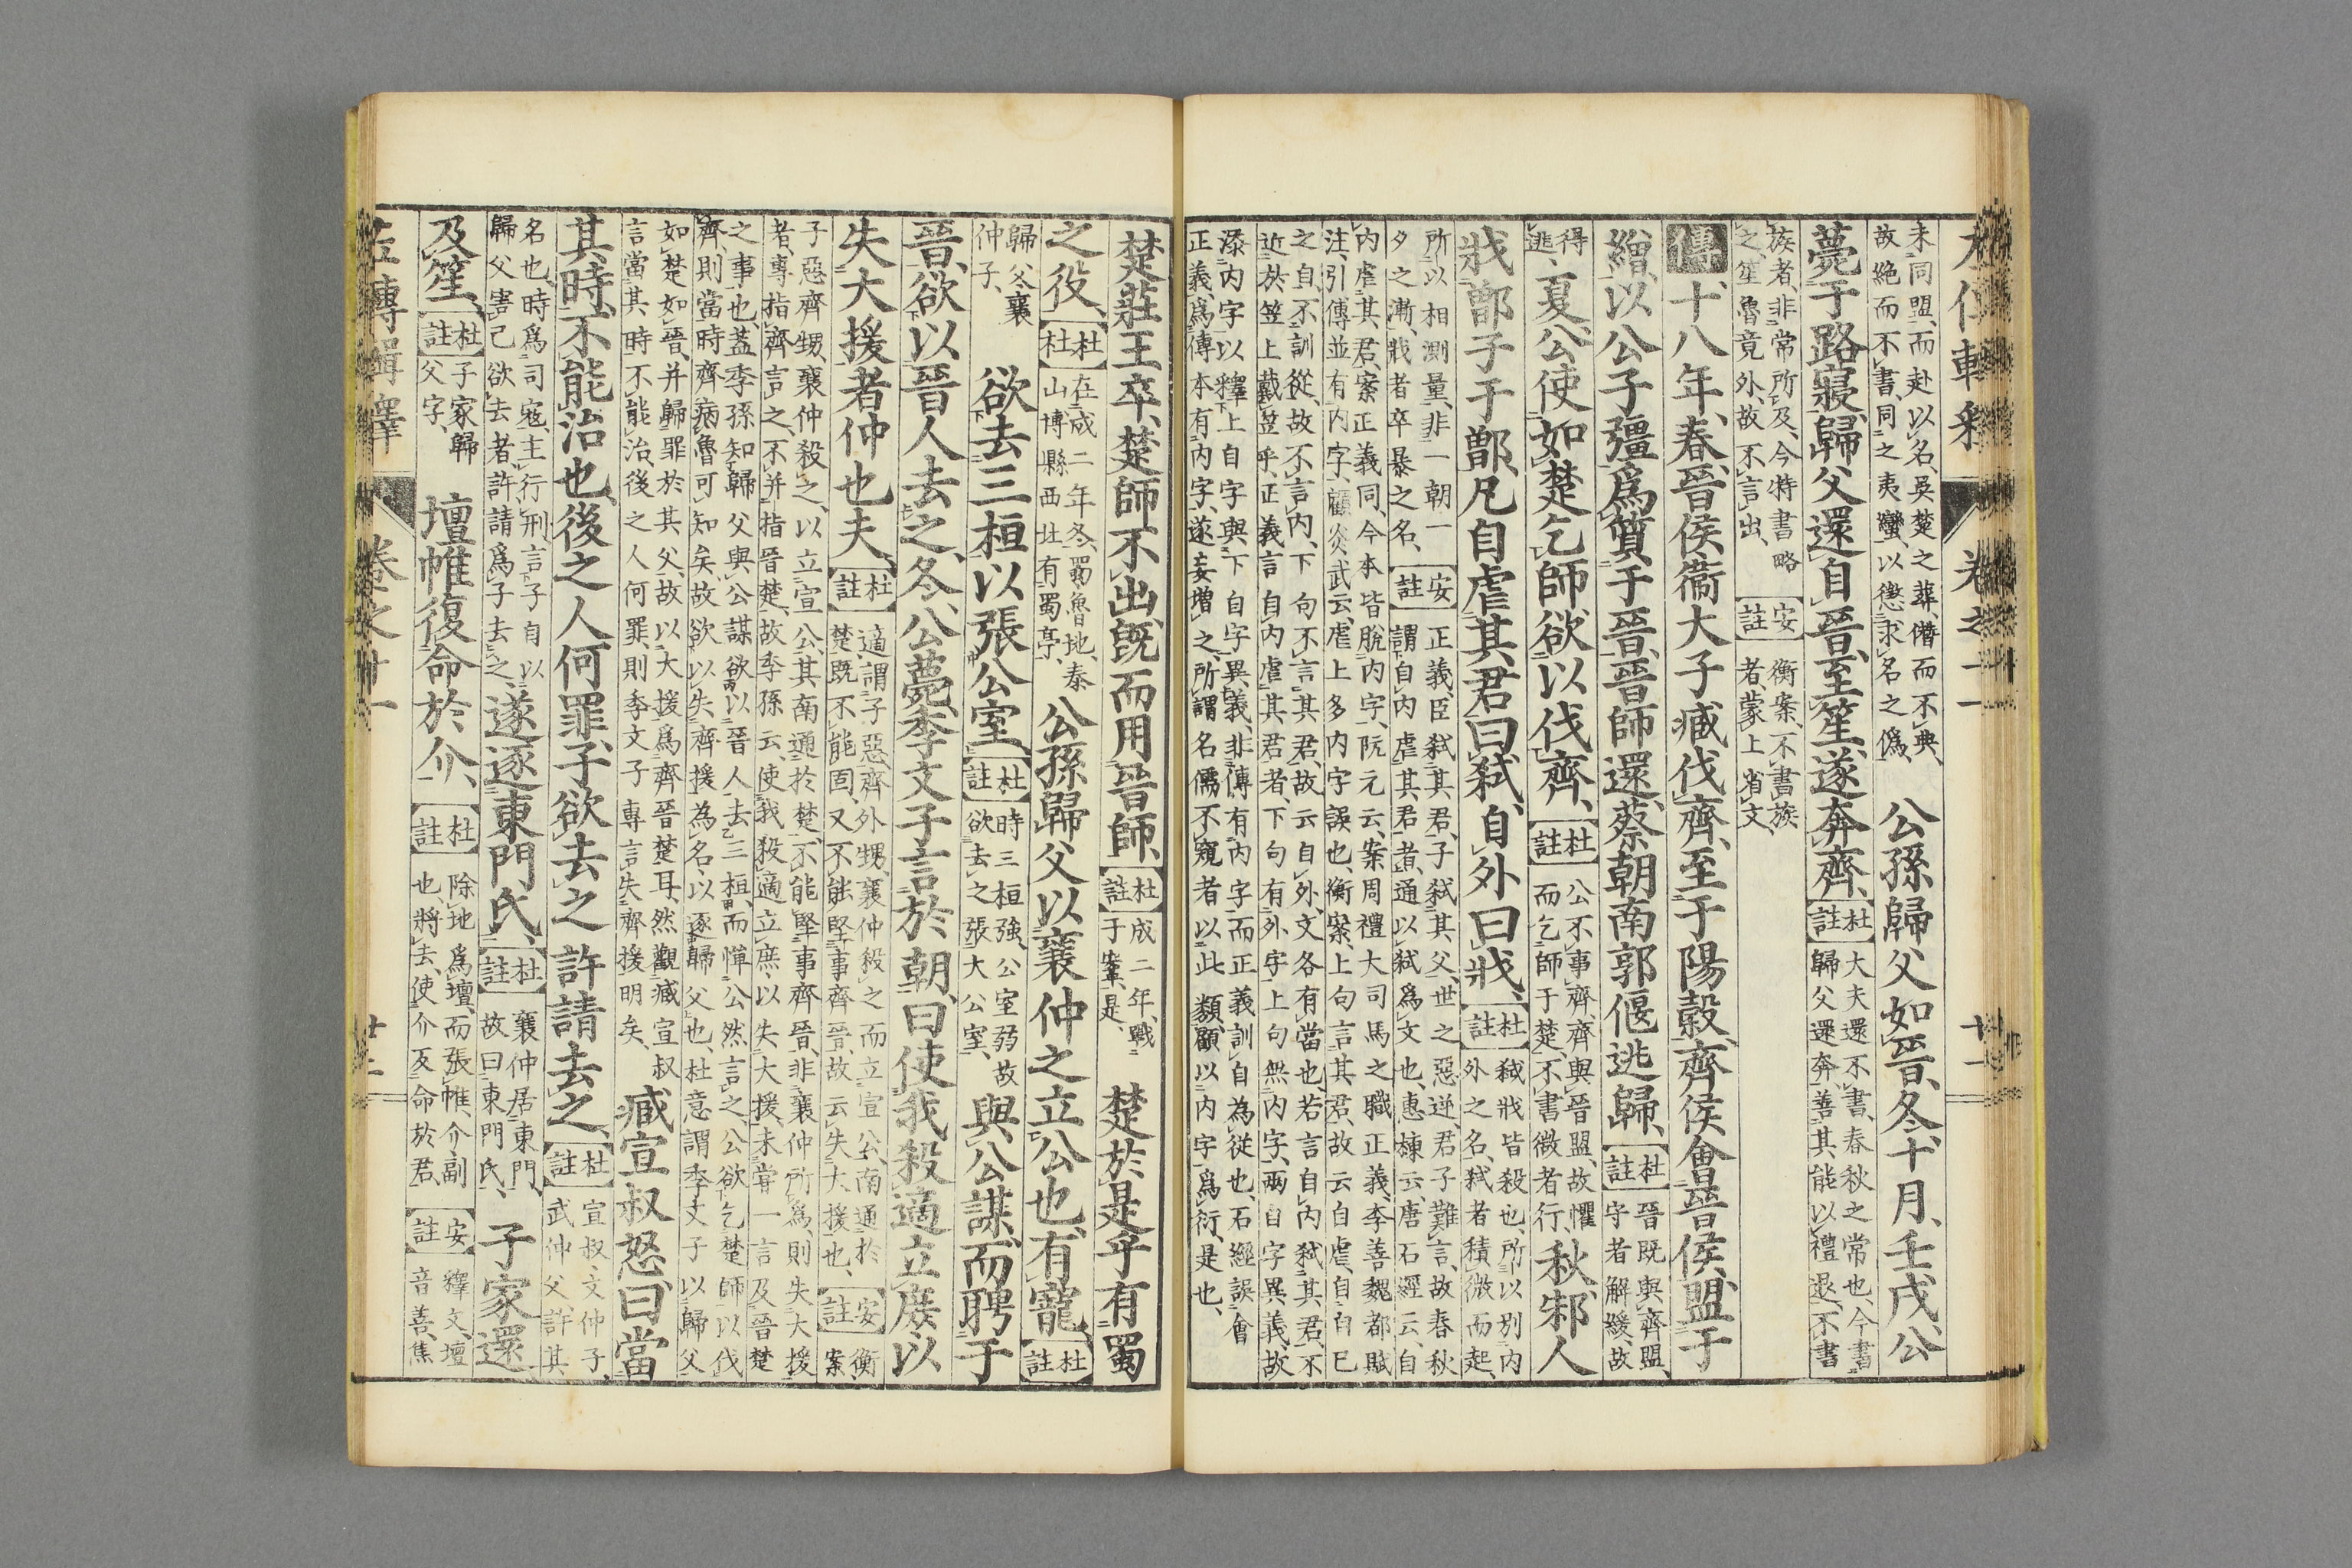 未同盟、而赴以名、吳楚之葬、僭而不典、故絶而不書、同之夷蠻、以懲求名之僞、公孫歸父如晉、冬十月、壬戌、公
薨于路寢、歸父還自晉、至笙、遂奔齊、杜註大夫還不書、春秋之常也、今書歸父還奔、善其能以禮退、不書
族者、非常所及、今特書略之、笙魯竟外、故不言出、安註衡案、不書族者、蒙上省文、
傳十八年、春、晉侯衞大子臧伐齊、至于陽穀、齊侯會晉侯盟于
繒、以公子彊爲質于晉、晉師還、蔡朝南郭偃逃歸、杜註晉既與齊盟、守者解緩、故
得逃、夏、公使如楚乞師、欲以伐齊、杜註公不事齊、齊與晉盟、故懼而乞師于楚、不書微者行、秋、邾人
戕鄫子于鄫、凡自虐其君曰弑、自外曰戕、杜註弑戕皆殺也、所以別內外之名、弑者積微而起、
所以相測量、非一朝一夕之漸、戕者卒暴之名、安註正義、臣弑其君、子弑其父、世之惡逆、君子難言、故春秋謂自内虐其君者、通以弑爲文也、惠棟云、唐石經云、自
内虐其君、案正義同、今本皆脫内字、阮元云、案周禮大司馬之職正義、李善魏都賦注、引傳並有内字、顧炎武云、虐上多内字誤也、衡案、上句言其君、故云自虐、自自已
之自、不訓從、故不言内、下句不言其君、故云自外、文各有當也、若言自内弑其君、不近於笠上戴笠乎、正義言自内虐其君者、下句有外字、上句無内字、兩自字異義、故
添内字以釋上自字與下自字異義、非傳有内字、而正義訓自為從也、石經誤會正義、爲傳本有内字、遂妄增之、所謂名儒不窺者以此類、顧以内字爲衍、是也、
楚莊王卒、楚師不出、既而用晉師、杜註成二年、戰于鞌、是、楚於是乎有蜀
之役、杜註在成二年冬、蜀魯地、泰山博縣西北有蜀亭、公孫歸父以襄仲之立公也、有寵、杜註
歸父襄仲子、欲去三桓以張公室、杜註時三桓強、公室弱、故欲去之張大公室、與公謀、而聘于
晉、欲以晉人去之、冬、公薨、季文子言於朝、曰、使我殺適立庶、以
失大援者、仲也夫、杜註適謂子惡、齊外甥、襄仲殺之而立宣公、南通於楚、既不能固、又不能堅事齊晉、故云失大援也、安註衡案
子惡齊甥、襄仲殺之、以立宣公、其南通於楚、不能堅事齊晉、非襄仲所爲、則失大援者、專指齊言之、不并指晉楚、故季孫云、使我殺適立庶、以失大援、未嘗一言及晉楚
之事也、蓋季孫知歸父與公謀欲以晉人去三桓、而憚公然言之、公欲乞楚師以伐齊、則當時齊病魯可知矣、故欲以失齊援為名、以逐歸父也、杜意謂季文子以歸父
如楚如晉、并歸罪於其父、故以大援爲齊晉楚耳、然觀臧宣叔言當其時不能治、後之人何罪、則季文子專言失齊援明矣、臧宣叔怒曰、當
其時、不能治也、後之人何罪、子欲去之、許請去之、杜註宣叔、文仲子、武仲父、許其
名也、時爲司寇、主行刑、言子自以歸父害己欲去者、許請爲子去之、遂逐東門氏、杜註襄仲居東門、故曰東門氏、子家還
及笙、杜註子家歸父字、壇帷復命於介、杜註除地爲壇、而張帷、介、副也、將去、使介反命於君、安註釋文、壇音善、焦
左傳輯釋 卷之十一